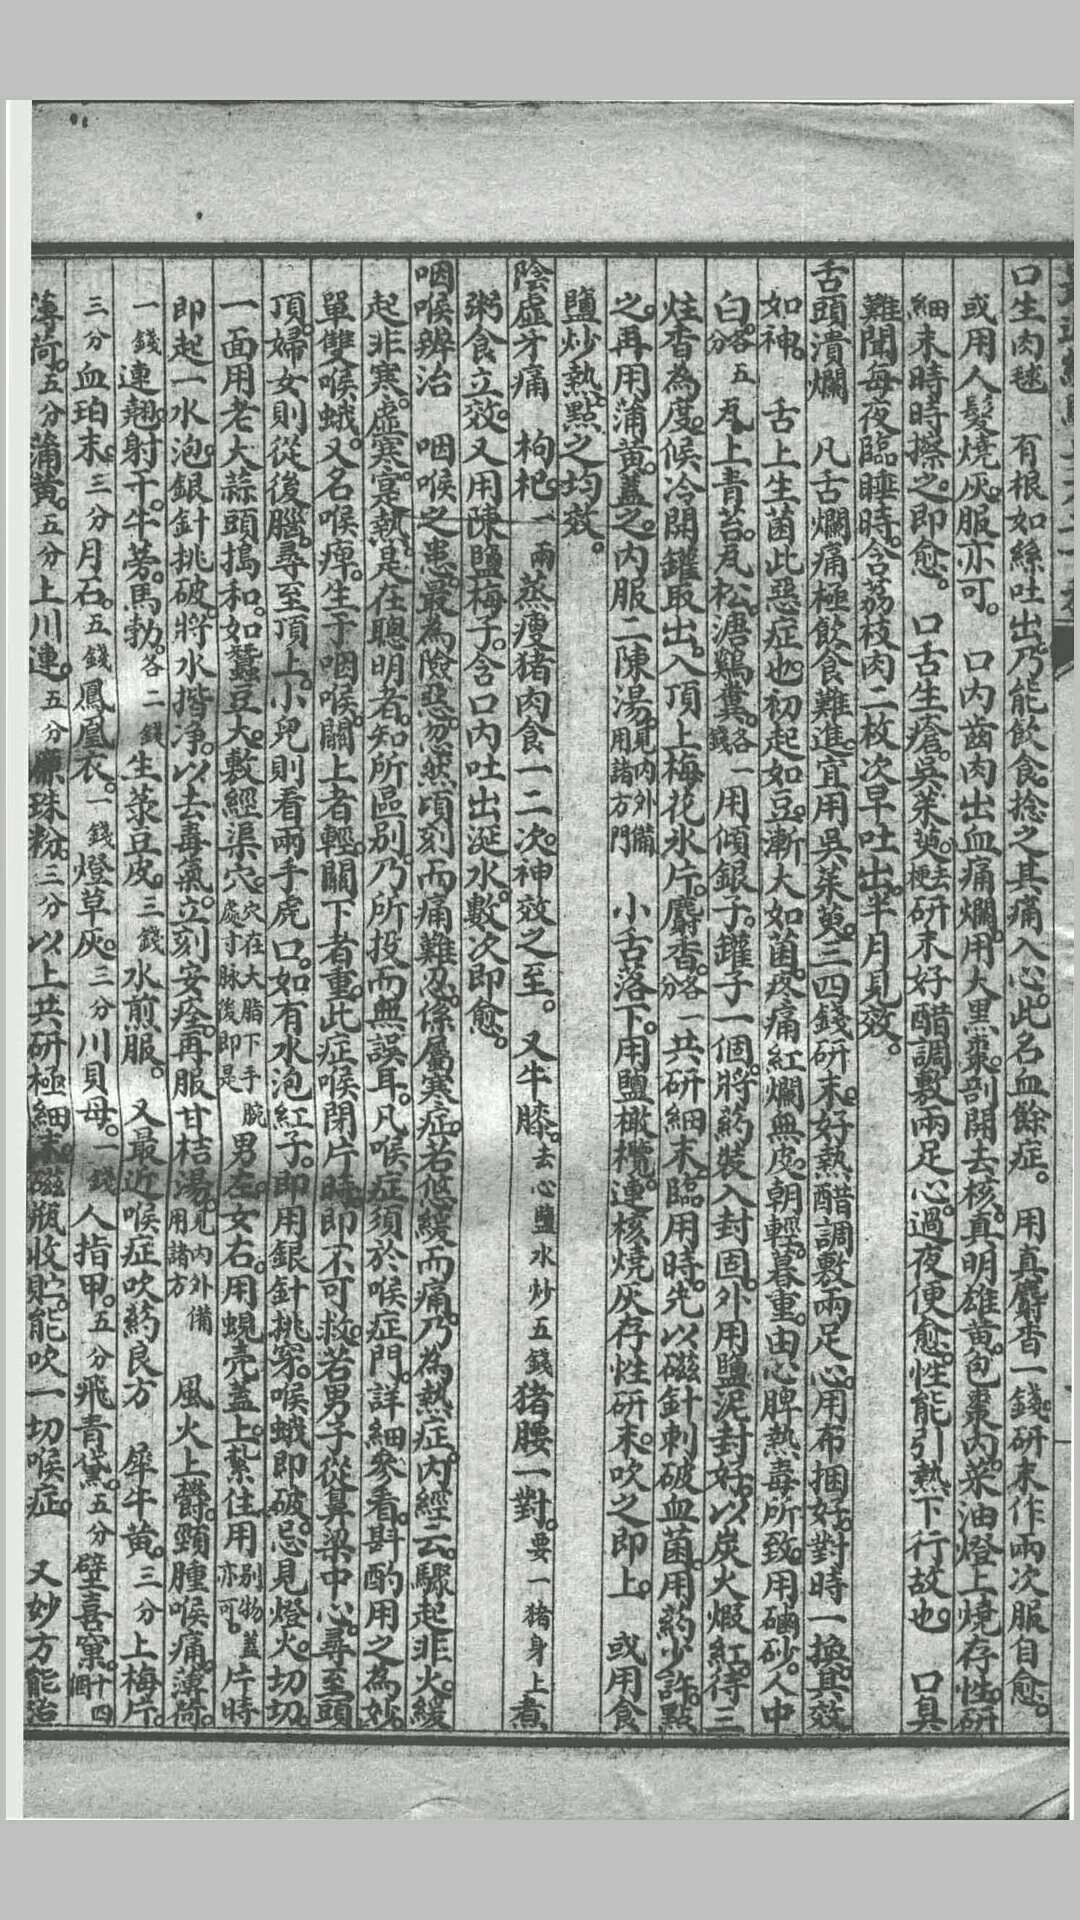 口生肉毬　有根如絲吐出。乃能飲食。捻之其痛入心。此名血餘症。用真麝香一錢。研末作兩次服自愈。
或用人髮燒灰。服亦可。　口內齒肉出血痛爛。用大黑棗。剖開去核。真明雄黃。包棗內。菜油燈上燒存性。研
細末時時擦之。即愈。　口舌生瘡。吳茱萸。去梗研末好醋調敷兩足心。過夜便愈。性能引熱下行故也。　口臭
難聞。每夜臨睡時。含荔枝肉二枚。次早吐出。半月見效。
舌頭潰爛　凡舌爛痛極。飲食難進。宜用吳茱萸。三四錢研末。好熱醋調敷兩足心。用布捆好。對時一換。其效
如神。　舌上生菌。此惡症也。初起如豆。漸大如菌。疼痛紅爛無皮。朝輕暮重。由心脾熱毒所致。用硇砂。人中
白。各五分瓦上青苔。瓦松。溏鷄糞。各一錢用傾銀子。罐子一個。將葯裝入封固。外用鹽泥封好。以炭火煆紅。待三
炷香為度。候冷開鑵取出。入頂上梅花氷片。麝香。各一分共研細末。臨用時。先以磁針刺破血菌。用葯少許。點
之。再用蒲黃。蓋之。內服二陳湯。見內外備用諸方門　小舌落下。用鹽橄欖。連核燒灰存性研末。吹之即上。　或用食
鹽炒熱。點之均效。
陰虛牙痛　枸杞。一兩蒸瘦猪肉食一二次。神效之至。　又牛膝。去心鹽水炒五錢猪腰一對。要一猪身上煮
粥食立效。又用陳鹽梅子。含口內吐出涎水。數次即愈。
咽喉辨治　咽喉之患。最為險惡。忽然頃刻而痛難忍。係屬寒症。若悠緩而痛。乃為熱症。內經云。驟起非火。緩
起非寒。虛寒。寔熱。是在聰明者。知所區別。乃所投而無誤耳。凡喉症須於喉症門。詳細參看。斟酌用之為妙。
單雙喉蛾。又名喉痺。生于咽喉。關上者輕。關下者重。此症喉閉片時。即不可救。若男子從鼻梁中心。尋至頭
頂。婦女則從後腦。尋至頂上。小兒則看兩手虎口。如有水泡紅子。即用銀針挑穿。喉蛾即破。忌見燈火。切切
一面用老大蒜頭搗和。如蠶豆大。敷經渠穴。穴在大脂下手腕處寸脉後即是男左女右。用蜆壳蓋上。紮住用別物蓋亦可。片時
即起一水泡。銀針挑破。將水揩净。以去毒氣。立刻安痊。再服甘桔湯。見內外備用諸方　風火上鬱。頸腫喉痛。薄荷。
一錢連翹。射干。牛旁。馬勃。各二錢生菉豆皮。三錢水煎服。　又最近喉症吹葯良方　犀牛黃。三分上梅片。
三分血珀末。三分月石。五錢鳳凰衣。一錢燈草灰。三分川貝母。一錢人指甲。五分飛青黛。五分壁喜窠。十四個
薄荷。五分蒲黃。五分上川連。五分廉珠粉。三分以上共研極細末。磁瓶收貯。能吹一切喉症。　又妙方能治